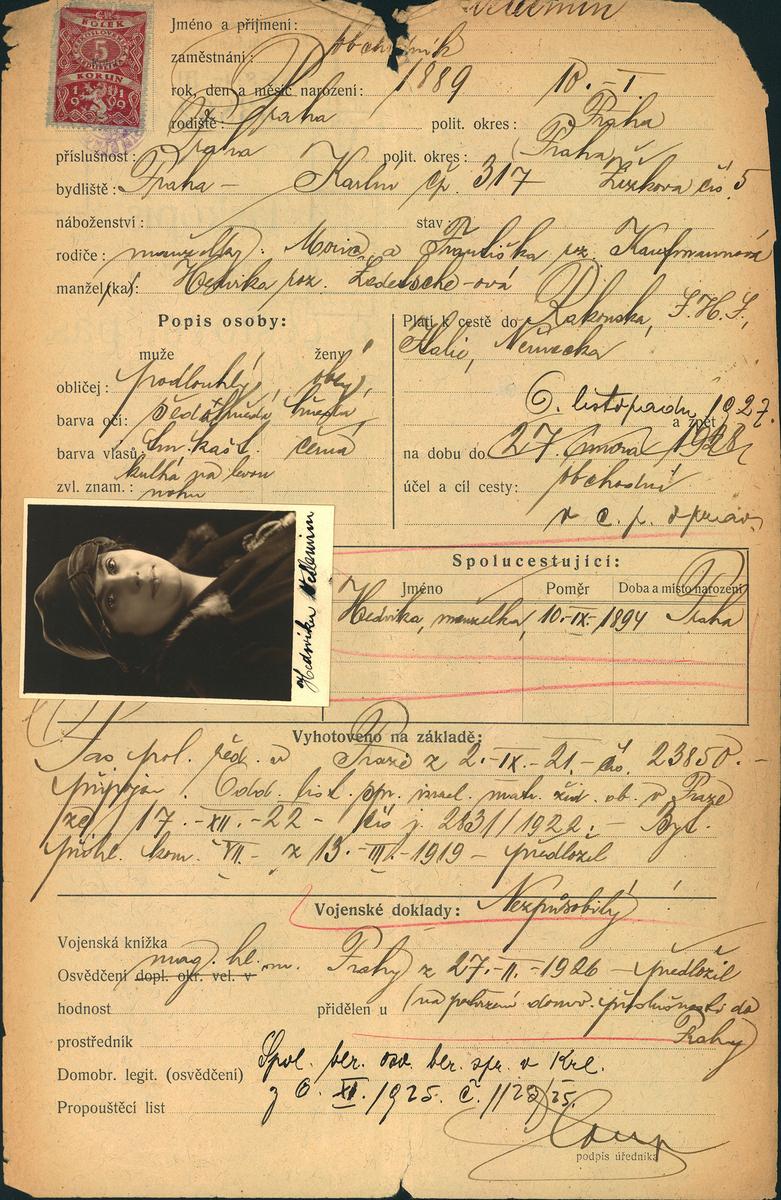 KOLEK
5
KORUN
1919
Jméno a příjmení:
zaměstnání: obchodník
rok, den a měsíc narození: 1889 10.-I.
rodiště: Praha polit. okres: Praha
příslušnost: Praha polit. okres: Praha
bydliště: Praha - Karlín čp. 317 Žižkova čís. 5
náboženství: stav:
rodiče: manželky: Moric a Františka roz. Kaufmannová
manžel(ka): Hedvika roz.
Popis osoby:
muže ženy
obličej: podlouhlý,
barva očí:
barva vlasů: tm. kašt. černá
zvl. znam.: kulhá na levou
nohu
Platí k cestě do Rakouska, S.H.S.,
Italie, Německa
6. listopadu 1927.
a zpět
na dobu do 27. února 1928
účel a cíl cesty: obchodní
Hedvika
Spolucestující:
Jméno Poměr Doba a místo narození
Hedvika, manželka, 10-IX.-1894 Praha
Vyhotoveno na základě:
Pas pol. řed. v Praze z 2.-IX.-21.- čís. 23850.-
připojen. Odd. list. izrael. matr. žid. ob. v Praze
ze 17.-XII.-22- čís j. 2831/1922.- Byt.
přihl. kom. VII.- z 13.-III.-1919- předložil
Vojenské doklady: Nezpůsobilý!
Vojenská knížka
Osvědčení dopl. okr. vel. v mag. hl. m. Prahy z 27.-II.-1926 - předložil
hodnost přidělen u (na potvrzení domov. příslušnosti do
Prahy)
prostředník
Domobr. legit. (osvědčení) Spol. ber. osv. ber. spr. v Krl.
Propouštěcí list z 6. XI. /1925. č. 1128/25.
podpis úředníka